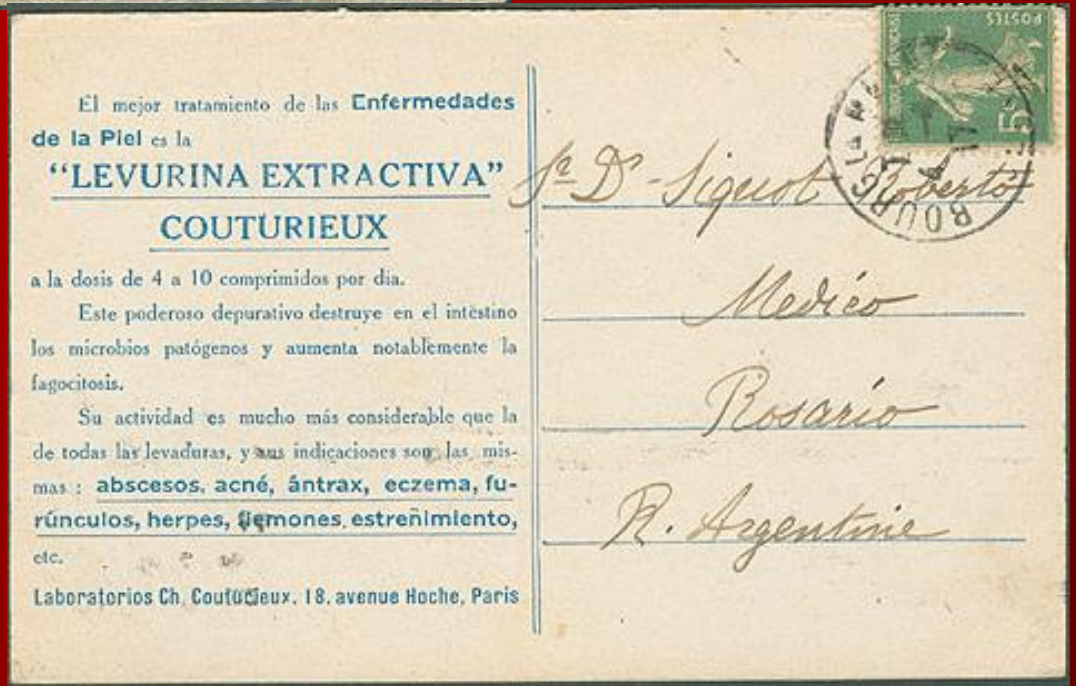 El mejor tratamiento de las Enfermedades
de la Piel es la
"LEVURINA EXTRACTIVA"
COUTURIEUX
a la dosis de 4 a 10 comprimidos por dia.
Este poderoso depurativo destruye en el intestino
los microbios patógenos y aumenta notablemente la
fagocitosis.
Su actividad es mucho más considerable que la
de todas las levaduras, y sus indicaciones son las mis-
mas : abscesos, acné, ántrax, eczema, fu-
rúnculos, herpes, flemones, estreñimiento,
etc.
Laboratorios Ch. Couturieux, 18, avenue Hoche, Paris
POSTES
5
Sr Dr - Siquot Roberto
Medico
Rosario
R. Argentine